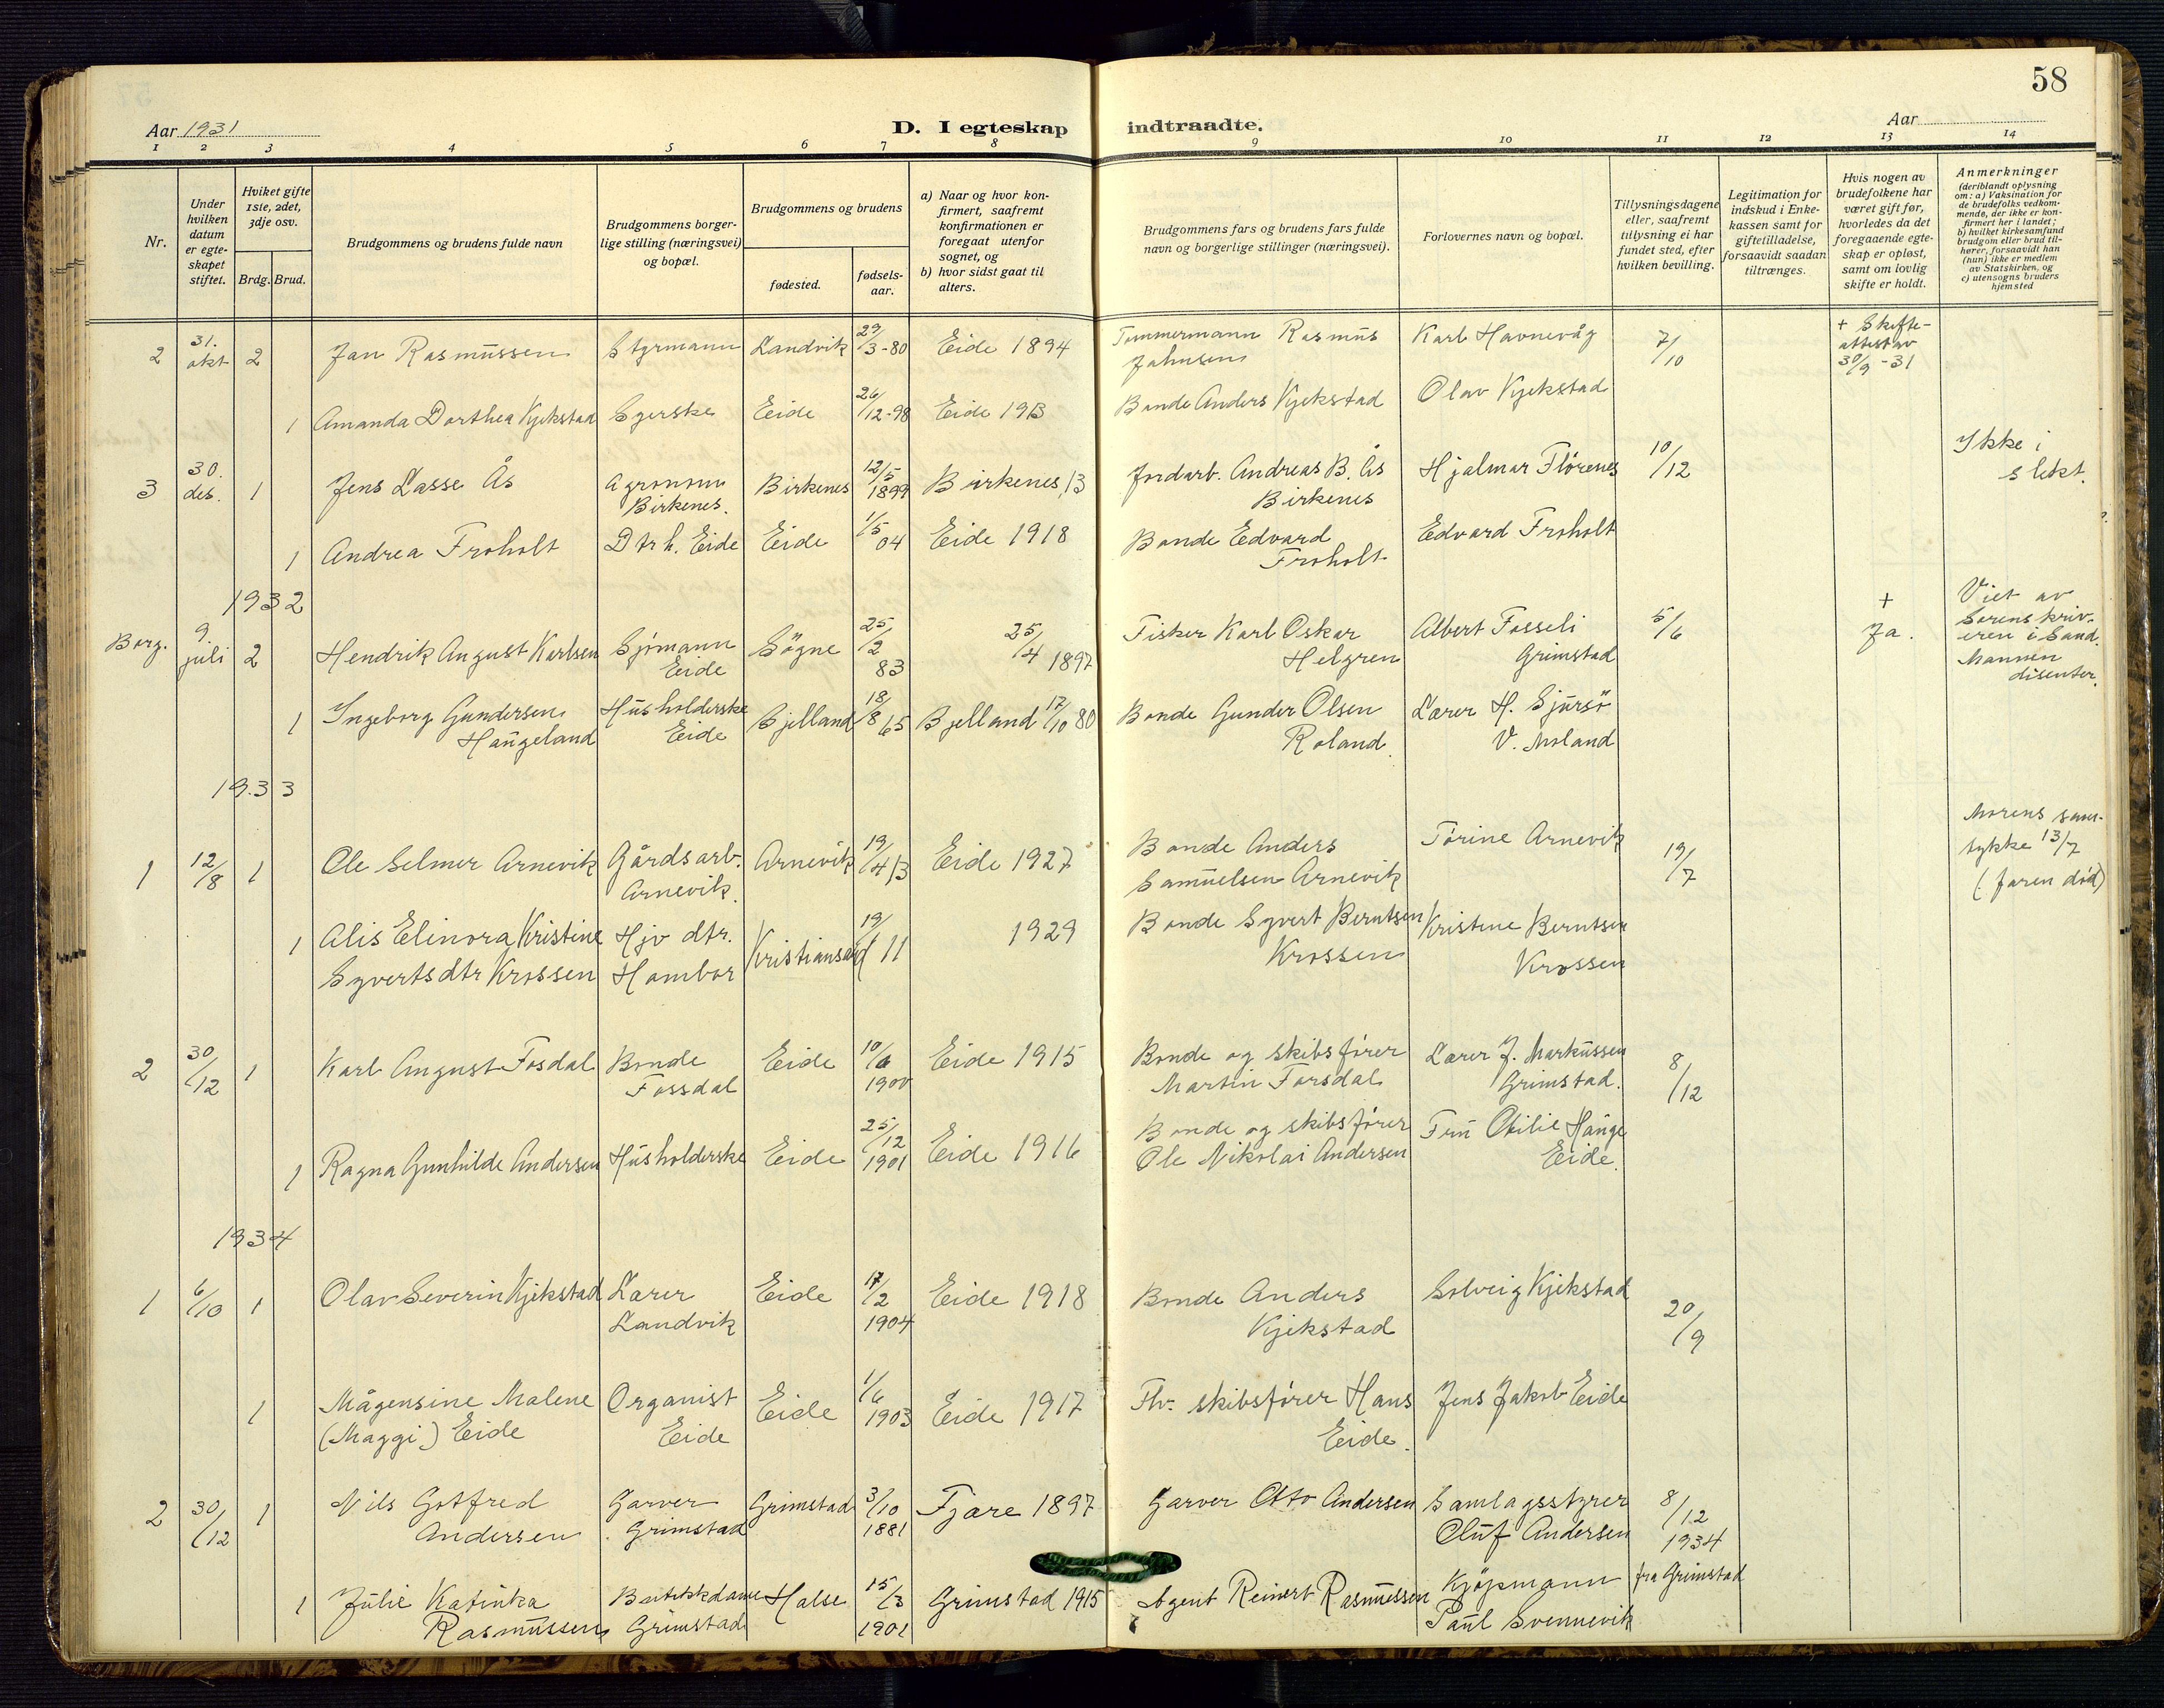 58
Aar 1931
D. I egteskap
indtraadte.
Aar
1 2 3 4 5 6 7 8 9 10 11 12 13 14
Nr.
Under hvilken datum er egteskapet stiftet.
Hviket gifte 1ste, 2det, 3dje osv.
Brdg. Brud.
Brudgommens og brudens fulde navn
Brudgommens borgerlige stilling (næringsvei) og bopæl.
Brudgommens og brudens
fødested.
fødselsaar.
a) Naar og hvor konfirmert, saafremt konfirmationen er foregaat utenfor sognet, og
b) hvor sidst gaat til alters.
Brudgommens fars og brudens fars fulde navn og borgerlige stillinger (næringsvei).
Forlovernes navn og bopæl.
Tillysningsdagene eller, saafremt tillysning ei har fundet sted, efter hvilken bevilling.
Legitimation for indskud i Enkekassen samt for giftetilladelse, forsaavidt saadan tiltrænges.
Hvis nogen av brudefolkene har været gift før, hvorledes da det foregaaende egteskap er opløst, samt om lovlig skifte er holdt.
Anmerkninger
(deriblandt oplysning om: a) Vaksination for de brudefolks vedkommende, der ikke er konfirmert her i landet; b) hvilket kirkesamfund brudgom eller brud tilhører, forsaavidt han (hun) ikke er medlem av Statskirken, og c) utensogns bruders hjemsted
2 31. okt 2 Jan Rasmussen Styrmann Landvik 29/3-80 Eide 1894 Tømmermann Rasmus Jahnsen Karl Havnevåg 7/10 + Skifteattest av 30/9-31
1 Amanda Dorthea Kjekstad Syerske Eide 26/12-98 Eide 1913 Bonde Anders Kjekstad Olav Kjekstad
3 30. des. 1 Jens Lasse Ås Agronom Birkenes. Birkenes 12/5 1899 Birkenes 13 Jordarb. Andreas B. Ås Birkenes Hjalmar Flörenes 10/12 Ikke i slekt.
1 Andrea Froholt Dtr h. Eide Eide 1/5 04 Eide 1918 Bonde Edvard Froholt Edvard Froholt
1932
Borg. 9. juli 2 Hendrik August Karlsen Sjømann Eide Sögne 25/2 83 25/4 1897 Fisker Karl Oskar Helgren Albert Fosseli Grimstad 5/6 + Ja. Viet av Sorenskriveren i Sand. Mannen disenter.
1 Ingeborg Gundersen Haugeland Husholderske Eide Bjelland 18/8 65 Bjelland 17/10 80 Bonde Gunder Olsen Roland. Lærer H. Sjursö V. Moland
1933
1 12/8 1 Ole Selmer Arnevik Gårdsarb. Arnevik. Arnevik 19/4 13 Eide 1927 Bonde Anders Samuelsen Arnevik Törine Arnevik 19/7 Morens samtykke 13/7 (faren död)
1 Alis Elinora Kristine Syvertsdtr Krossen Hjv dtr. Hombor Kristiansand 19/1 11 1929 Bonde Syvert Berntsen Krossen Kristine Berntsen Krossen
2 30/12 1 Karl August Fosdal Bonde Fossdal Eide 10/6 1900 Eide 1915 Bonde og skibsförer Martin Forsdal Lærer J. Markussen Grimstad. 8/12
1 Ragna Gunhilde Andersen Husholderske Eide 25/12 1901 Eide 1916 Bonde og skibsförer Ole Nikolai Andersen Fru Otilie Hauge Eide.
1934
1 6/10 1 Olav Severin Kjekstad Lærer Landvik Eide 17/2 1904 Eide 1918 Bonde Anders Kjekstad Solveig Kjekstad 20/9
1 Mågensine Malene (Maggi) Eide Organist Eide Eide 1/6 1903 Eide 1917 Fhv. skibsförer Hans Eide. Jens Jakob Eide
2 30/12 1 Nils Gotfred Andersen Garver Grimstad Grimstad 3/10 1881 Fjære 1897 Garver Otto Andersen Samlagsstyrer Oluf Andersen 8/12 1934
1 Julie Katinka Rasmussen Butikkdame Grimstad Halse 15/3 1901 Grimstad 1915 Agent Reinert Rasmussen Kjöpmann Paul Svennevik fra Grimstad